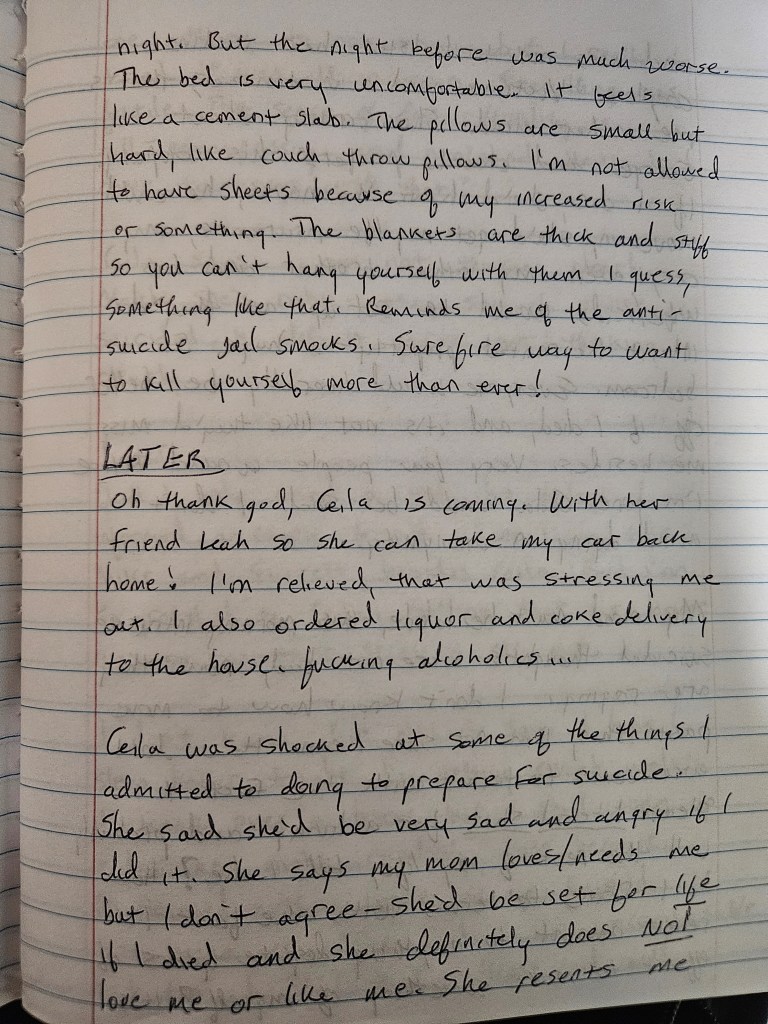 night. But the night before was much worse.
The bed is very uncomfortable. It feels
like a cement slab. The pillows are small but
hard, like couch throw pillows. I'm not allowed
to have sheets because of my increased risk
or something. The blankets are thick and stiff
so you can't hang yourself with them I guess,
something like that. Reminds me of the anti-
suicide jail smocks. Surefire way to want
to kill yourself more than ever!
LATER
Oh thank god, Ceila is coming. With her
friend Leah so she can take my car back
home! I'm relieved, that was stressing me
out. I also ordered liquor and coke delivery
to the house. fucking alcoholics...
Ceila was shocked at some of the things I
admitted to doing to prepare for suicide.
She said she'd be very sad and angry if I
did it. She says my mom loves/needs me
but I don't agree - she'd be set for life
if I died and she definitely does NOT
love me or like me. She resents me